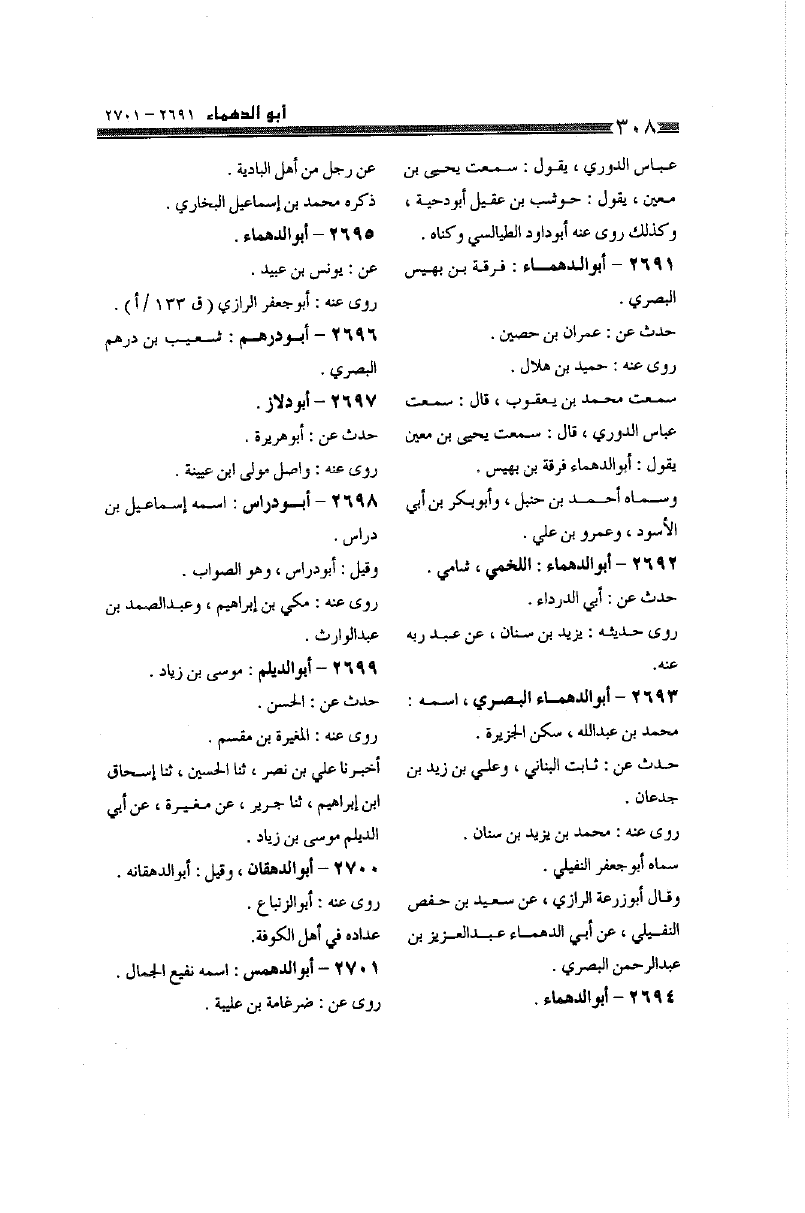 أبو الدهماء ٢٦٩١ - ٢٧٠١
٣٠٨
عباس الدوري ، يقول : سمعت يحيى بن
معين ، يقول : حوثب بن عقيل أبودحية ،
وكذلك روى عنه أبوداود الطيالسي وكناه .
٢٦٩١ - أبوالدهماء : فرقة بن بهيس
البصري .
حدث عن : عمران بن حصين .
روى عنه : حميد بن هلال .
سمعت محمد بن يعقوب ، قال : سمعت
عباس الدوري ، قال : سمعت يحيى بن معين
يقول : أبوالدهماء فرقة بن بهيس .
وسماه أحمد بن حنبل ، وأبوبكر بن أبي
الأسود ، وعمرو بن علي .
٢٦٩٢ - أبوالدهماء : اللخمي ، شامي .
حدث عن : أبي الدرداء .
روى حديثه : يزيد بن سنان ، عن عبد ربه
عنه.
٢٦٩٣ - أبوالدهماء البصري ، اسمه :
محمد بن عبدالله ، سكن الجزيرة .
حدث عن : ثابت البناني ، وعلي بن زيد بن
جدعان .
روى عنه : محمد بن يزيد بن سنان .
سماه أبوجعفر النفيلي .
وقال أبوزرعة الرازي ، عن سعيد بن حفص
النفيلي ، عن أبي الدهماء عبدالعزيز بن
عبدالرحمن البصري .
٢٦٩٤ - أبوالدهماء .
عن رجل من أهل البادية .
ذكره محمد بن إسماعيل البخاري .
٢٦٩٥ - أبوالدهماء .
عن : يونس بن عبيد .
روى عنه : أبوجعفر الرازي ( ق ١٣٣ / أ ) .
٢٦٩٦ - أبودرهم : شعيب بن درهم
البصري .
٢٦٩٧ - أبودلاز .
حدث عن : أبوهريرة .
روى عنه : واصل مولى ابن عيينة .
٢٦٩٨ - أبودراس : اسمه إسماعيل بن
دراس .
وقيل : أبودراس ، وهو الصواب .
روى عنه : مكي بن إبراهيم ، وعبدالصمد بن
عبدالوارث .
٢٦٩٩ - أبوالديلم : موسى بن زياد .
حدث عن : الحسن .
روى عنه : المغيرة بن مقسم .
أخبرنا علي بن نصر ، ثنا الحسين ، ثنا إسحاق
ابن إبراهيم ، ثنا جرير ، عن مغيرة ، عن أبي
الديلم موسى بن زياد .
٢٧٠٠ - أبوالدهقان ، وقيل : أبوالدهقانه .
روى عنه : أبوالزنباع .
عداده في أهل الكوفة.
٢٧٠١ - أبوالدهمس : اسمه نفيع الجمال .
روى عن : ضرغامة بن عليبة .